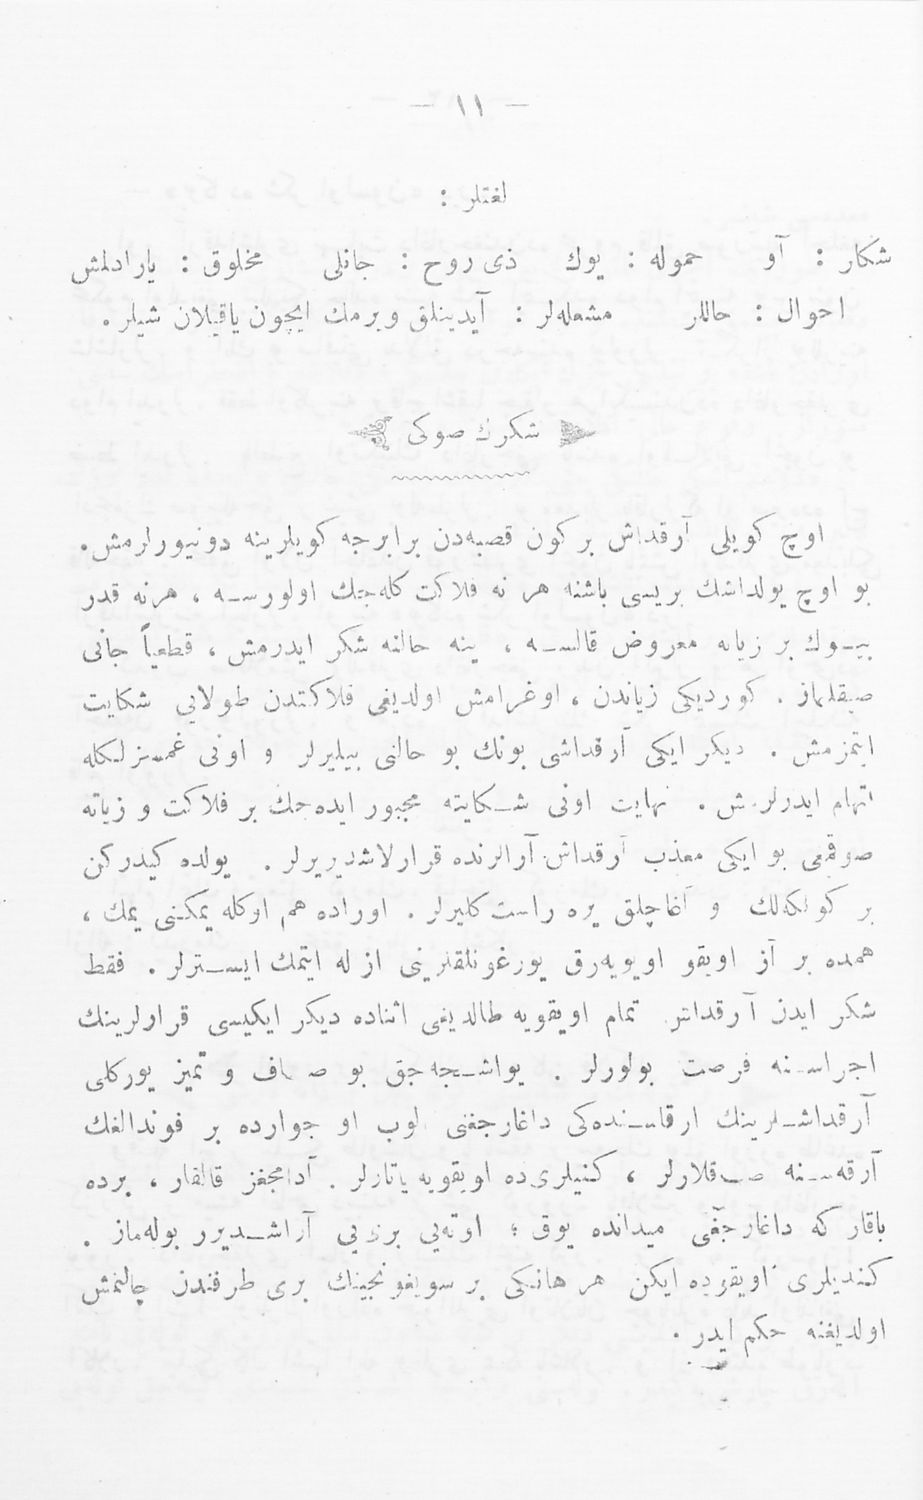 — ١١ —
لغتلر :
شكار : آو حموله : يوك ذى روح : جانلى مخلوق : يارادلمش
احوال : حاللر مشعله‌لر : آيدينلق ويرمك ايچون ياقيلان شيلر .
شكرك صوكى
اوچ كويلى آرقداش بر كون قصبه‌دن برابرجه كويلرينه دونيورلرمش .
بو اوچ يولداشك بريسى باشنه هر نه فلاكت كله‌جك اولورسه ، هرنه قدر
بيوك بر زيانه معروض قالسه ، ينه حالنه شكر ايدرمش ، قطعياً جانى
صيقلماز . كورديكى زياندن ، اوغرامش اولديغى فلاكتدن طولايى شكايت
ايتمزمش . ديكر ايكى آرقداشى بونك بو حالنى بيليرلر و اونى غمسزلكله
اتهام ايدرلرمش . نهايت اونى شكايته مجبور ايده‌جك بر فلاكت و زيانه
صوقمغى بو ايكى معذب آرقداش آرالرنده قرارلاشديريرلر . يولده كيدركن
بر كولكه‌لك و آغاچلق يره راست كليرلر . اوراده هم اوكله يمكنى يمك ،
همده بر آز اويقو اويويه‌رق يورغونلقلرينى ازاله ايتمك ايسترلر . فقط
شكر ايدن آرقداشلر تمام اويقويه طالديغى اثناده ديكر ايكيسى قرارلرينك
اجراسنه فرصت بولورلر . يواشجه‌جق بو صاف و تميز يوركلى
آرقداشلرينك ارقاسنده‌كى داغارجغنى آلوب او جوارده بر فوندالغك
آرقه‌سنه صاقلارلر ، كنيلرى‌ده اويقويه ياتارلر . آدامجغز قالقار ، برده
باقار كه داغارجغى ميدانده يوق ؛ اوته‌يى برى‌يى آراشديرر بوله‌ماز .
كنديلرى اويقوده ايكن هر هانكى بر سويغونجينك برى طرفندن چالنمش
اولديغنه حكم ايدر .